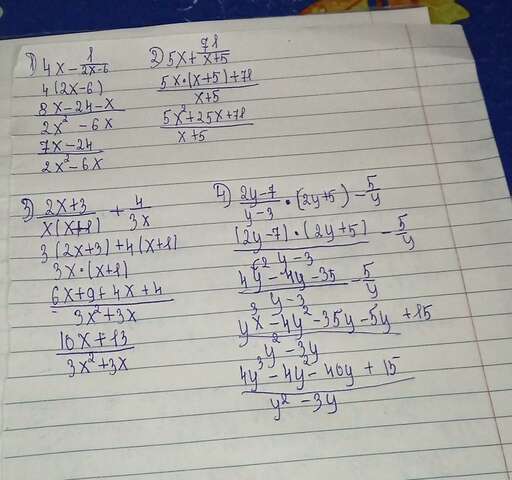 1) 4x - 8/(2x-6)
4(2x-6)
8x-24-x
2x² - 6x
7x-24
2x² - 6x
2) 5x + 78/(x+5)
5x·(x+5)+78
x+5
5x²+25x+78
x+5
3) (2x+3)/(x(x+1)) + 4/(3x)
3(2x+3)+4(x+1)
3x·(x+1)
6x+9+4x+4
3x²+3x
10x+13
3x²+3x
4) (2y-7)/(y-3) · (2y+5) - 5/y
(2y-7)·(2y+5) - 5/y
y-3
4y²-4y-35 - 5/y
y-3
-4y²-35y-5y+15
y²-3y
4y³-4y²-40y+15
y²-3y